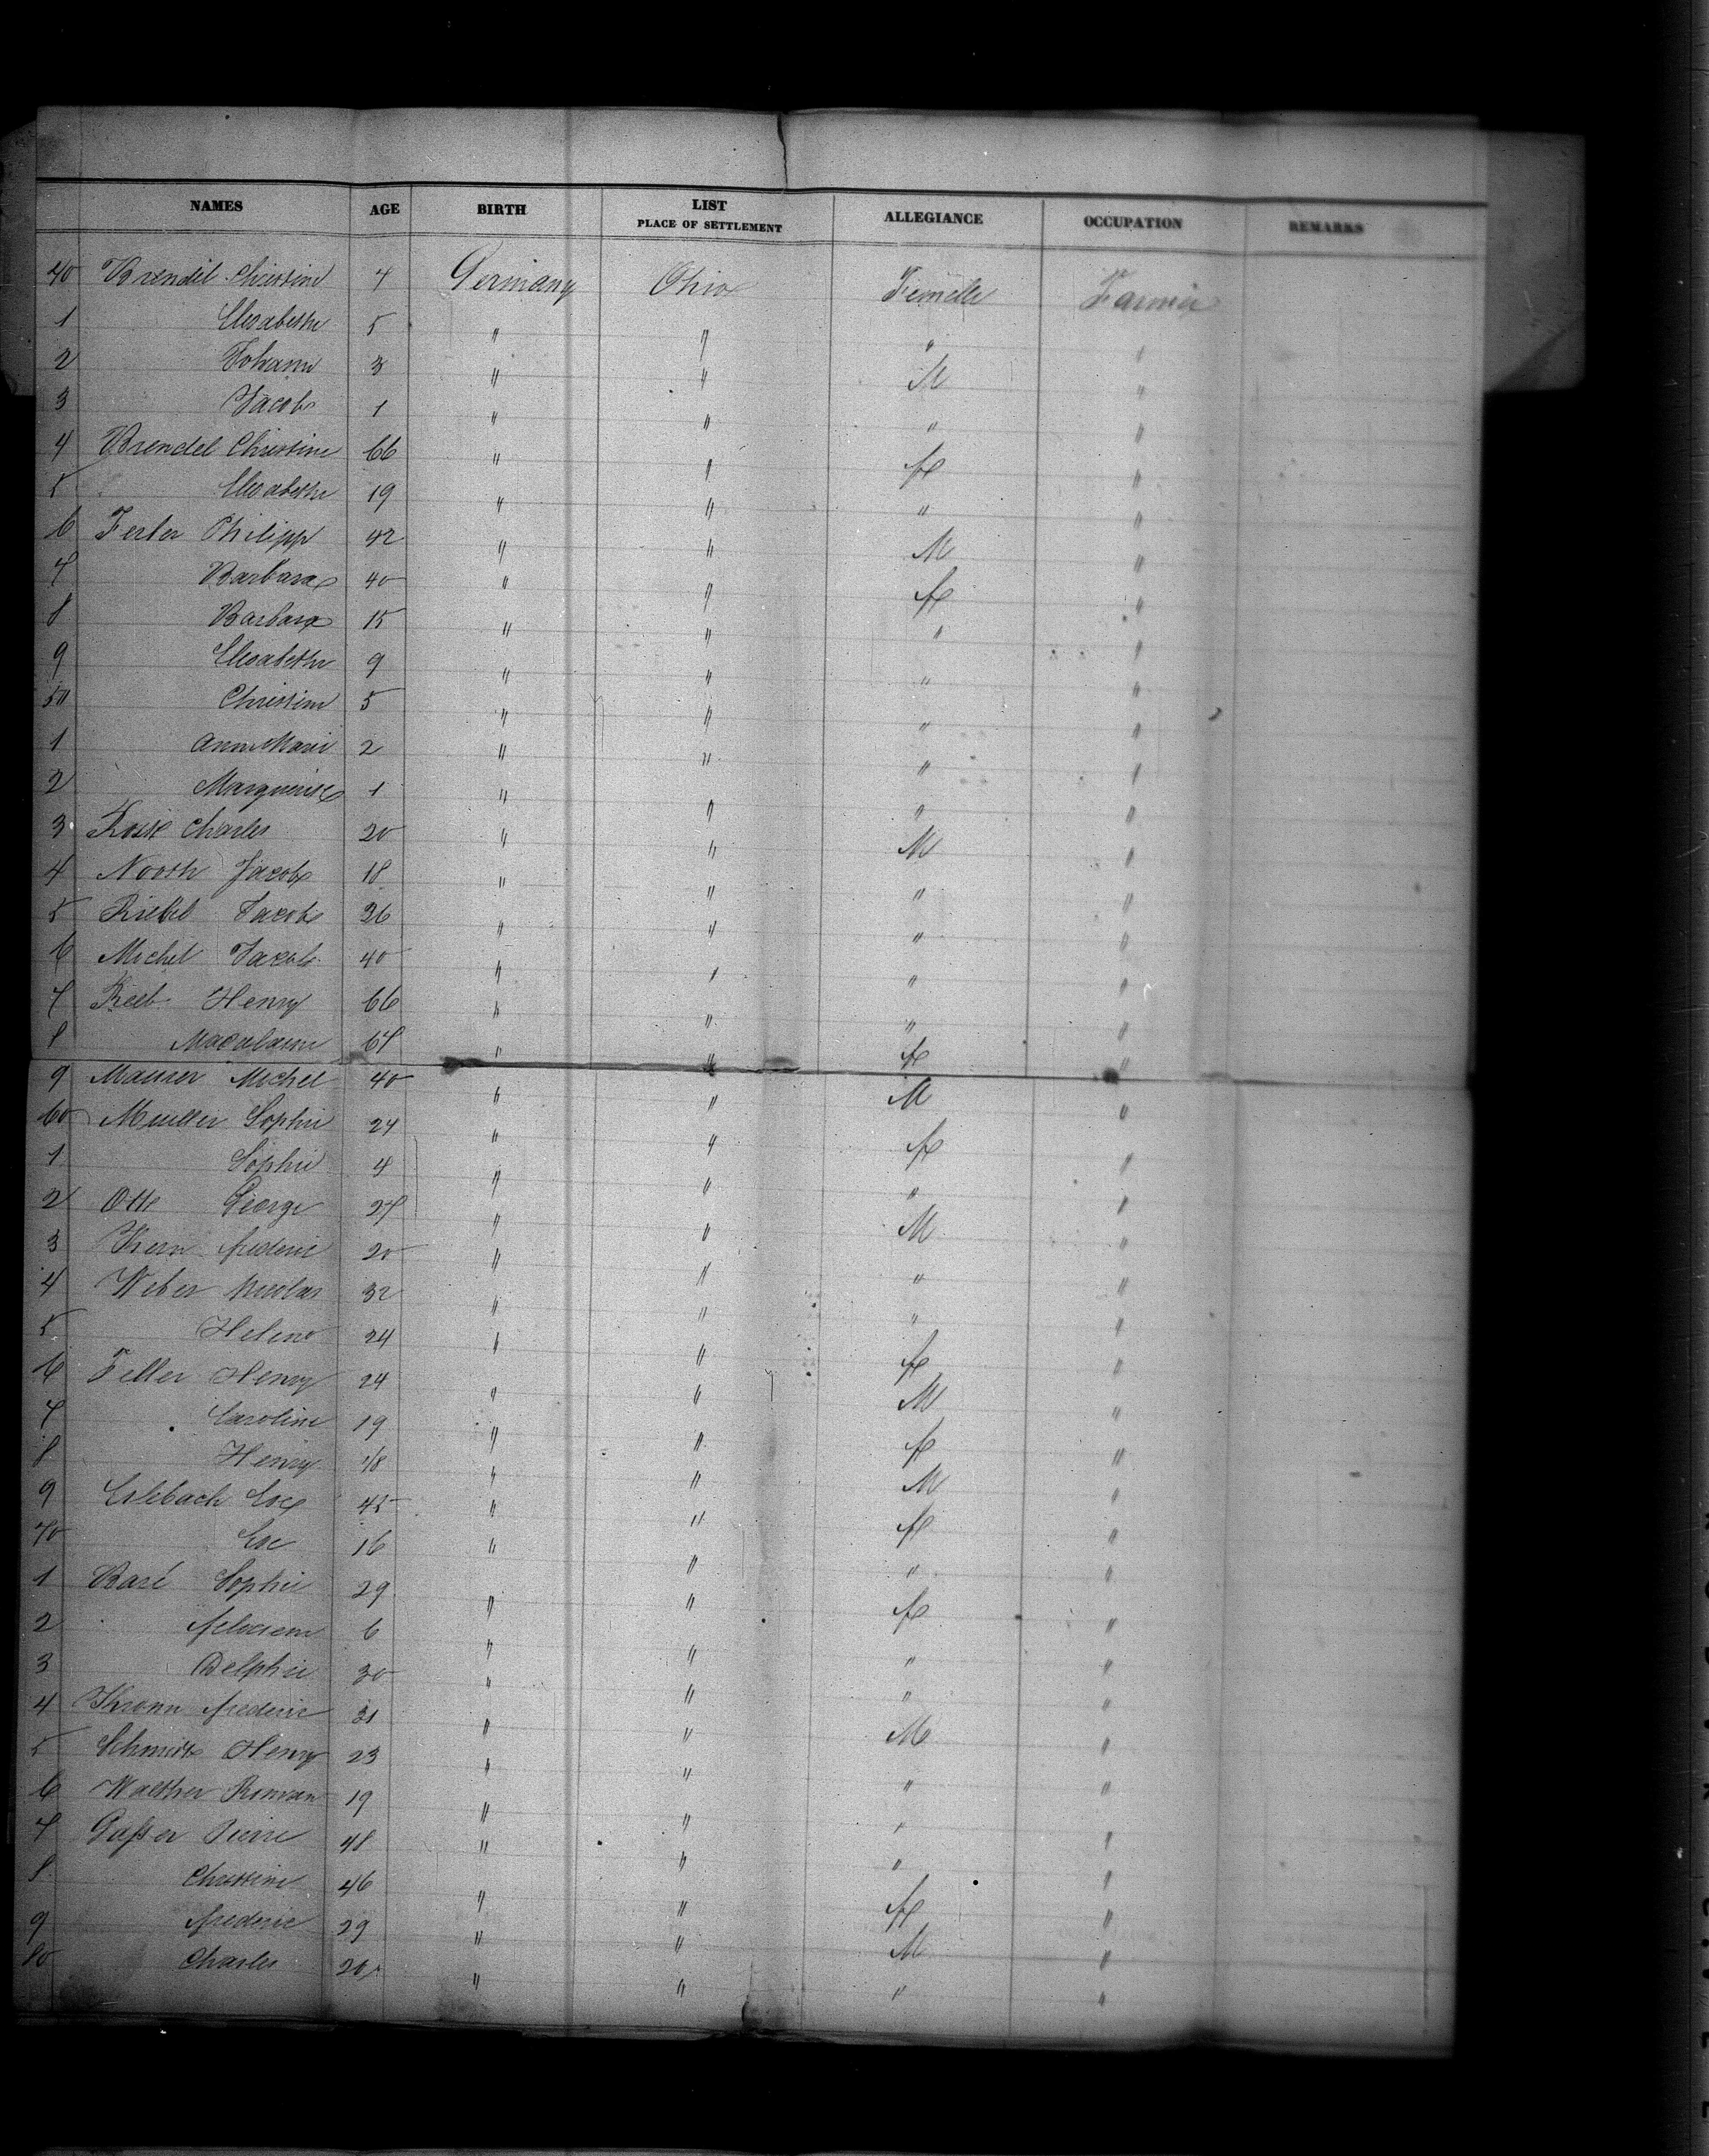 NAMES AGE BIRTH LIST PLACE OF SETTLEMENT ALLEGIANCE OCCUPATION REMARKS
40 Brendel Christine 7 Germany Ohio Femelle Farmer
1 Elisabethe 5 " " " "
2 Johann 3 " " M "
3 Jacob 1 " " " "
4 Brendel Christine 66 " " f "
5 Elisabethe 19 " " " "
6 Ferber Philipp 42 " " M "
7 Barbara 40 " " f "
8 Barbara 15 " " " "
9 Elisabethe 9 " " " "
50 Christine 5 " " " "
1 Ann Marie 2 " " " "
2 Marguerite 1 " " " "
3 Charles 20 " " M "
4 North Jacob 18 " " " "
5 Riebel Jacob 26 " " " "
6 Michel Jacob 40 " " " "
7 Reeb Henry 66 " " " "
8 67 " " f "
9 Maurer Michel 40 " " M "
60 Muller Sophie 24 " " f "
1 Sophie 4 " " " "
2 Otte George 27 " " M "
3 Kern frederic 20 " " " "
4 Weber Nicolas 32 " " " "
5 Helene 24 " " f "
6 Feller Henry 24 " " M "
7 Caroline 19 " " f "
8 Henry 18 " " M "
9 Erlebach Eve 45 " " f "
70 Eve 16 " " " "
1 Baré Sophie 29 " " f "
2 6 " " " "
3 Delphie 30 " " " "
4 Kronn frederic 31 " " M "
5 Schmitt Henry 23 " " " "
6 Walther Roman 19 " " " "
7 Gasser Pierre 48 " " " "
8 Christine 46 " " f "
9 frederic 29 " " M "
80 Charles 20 " " " "